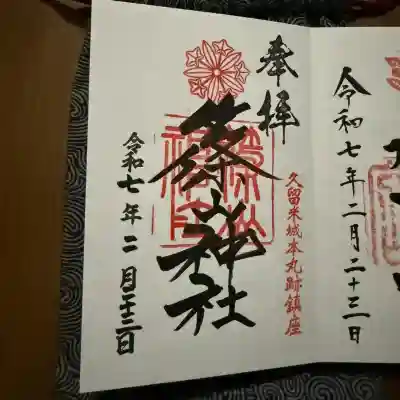 奉拝
久留米城本丸跡鎮座
篠山神社
令和七年二月二十三日
令和七年二月二十三日